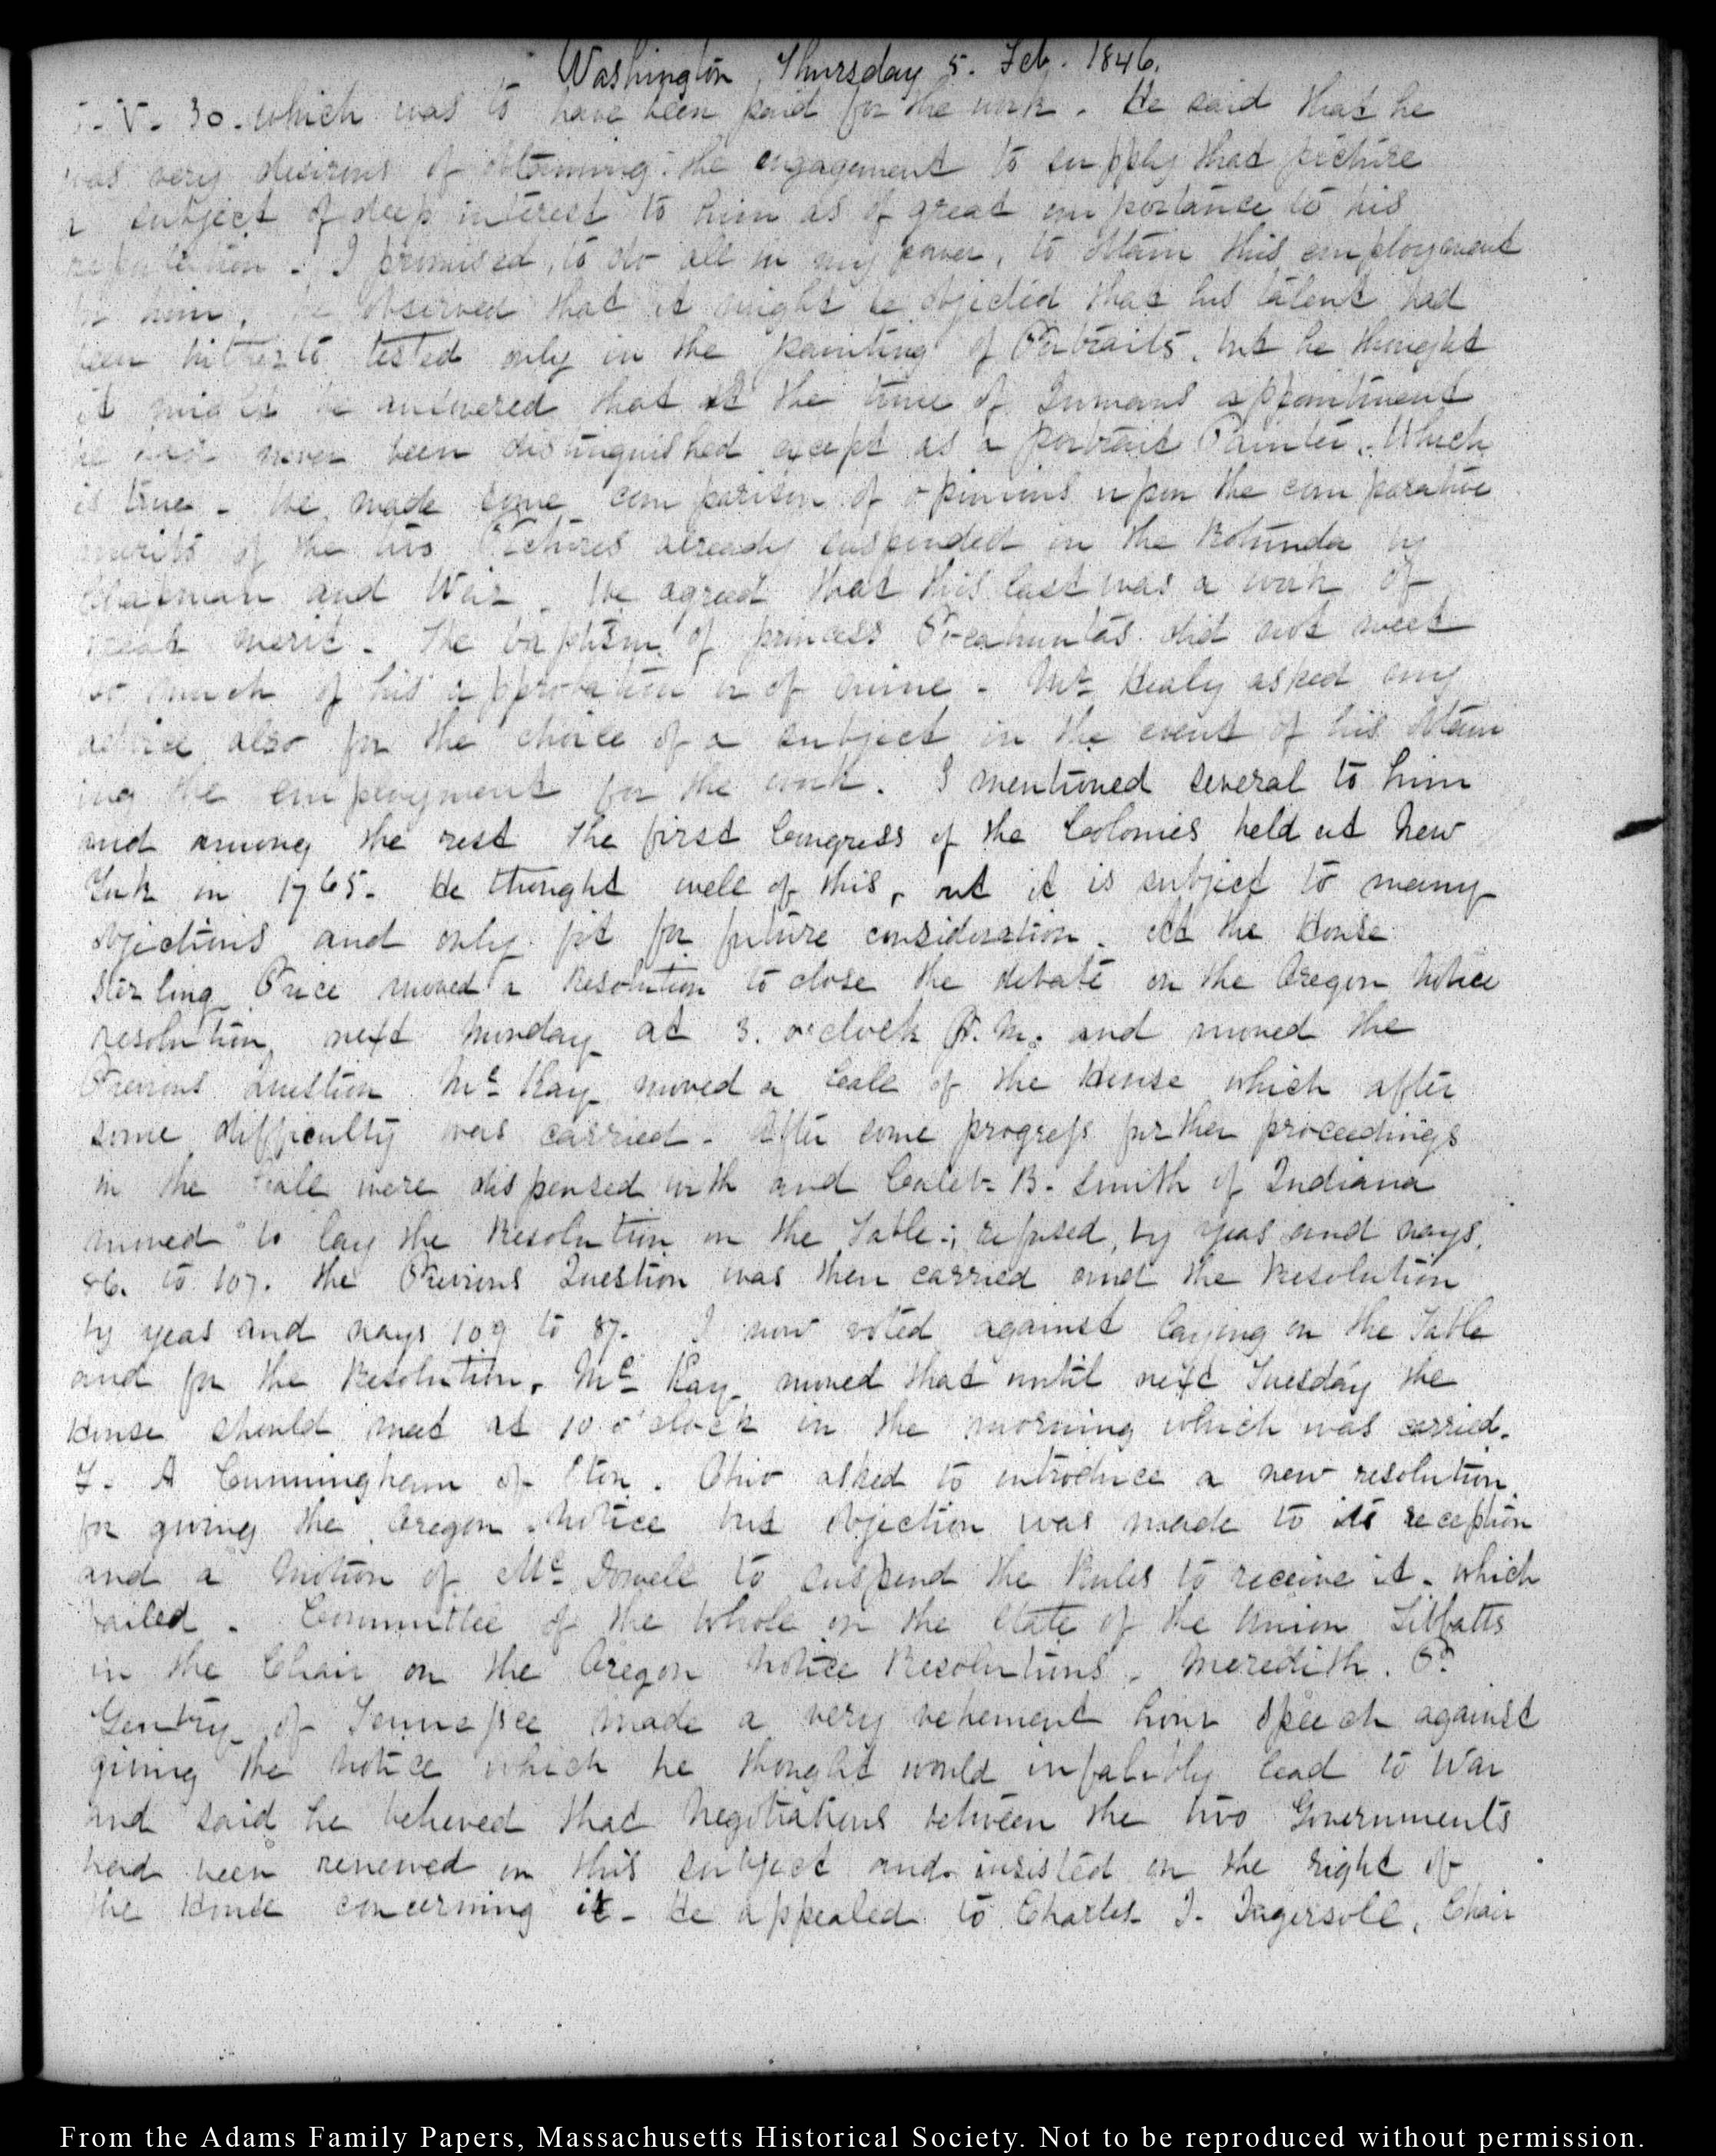 Washington, Thursday 5. Feb. 1846.
V. 30. which was to have been paid for the work. He said that he
was very desirous of obtaining the engagement to supply that picture
a subject of deep interest to him as of great importance to his
reputation. I promised, to do all in my power, to obtain this employment
for him. He observed that it might be objected that his talent had
been hitherto tested only in the painting of Portraits, but he thought
it might be answered that at the time of Inmans appointment
he had never been distinguished except as a portrait Painter. Which
is true. We made some comparison of opinions upon the comparative
merits of the two Pictures already suspended in the Rotunda by
Chapman and Weir. We agreed that this last was a work of
great merit. The baptism of princess Pocahuntas did not meet
so much of his approbation or of mine. Mr Healy asked my
advice also for the choice of a subject in the event of his obtain
ing the employment for the work. I mentioned several to him
and among the rest the first Congress of the Colonies held at New
York in 1765. He thought well of this, but it is subject to many
objections and only fit for future consideration. At the House
Sterling Price moved a Resolution to close the debate on the Oregon Notice
resolution next Monday at 3. o'clock P.M. and moved the
Previous Question McKay moved a Call of the House which after
some difficulty was carried. After some progress further proceedings
in the Call were dispensed with and Caleb B. Smith of Indiana
moved to lay the Resolution on the Table; refused, by yeas and nays,
86. to 107. the Previous Question was then carried and the Resolution
by yeas and nays 109 to 87. I now voted against laying on the Table
and for the Resolution. McKay moved that until next Tuesday the
House should meet at 10 o'clock in the morning which was carried.
F. A Cunningham of Eton. Ohio asked to introduce a new resolution
for giving the Oregon Notice but objection was made to its reception
and a Motion of McDowell to suspend the Rules to receive it. which
failed. Committee of the Whole on the State of the Union Tibbatts
in the Chair on the Oregon Notice Resolutions. Meredith. P.
Gentry of Tennessee made a very vehement hour speech against
giving the Notice which he thought would infalibly lead to War
and said he believed that Negotiations between the two Governments
had been renewed on this subject and insisted on the right of
the House concerning it. He appealed to Charles J. Ingersoll, Chair
From the Adams Family Papers, Massachusetts Historical Society. Not to be reproduced without permission.